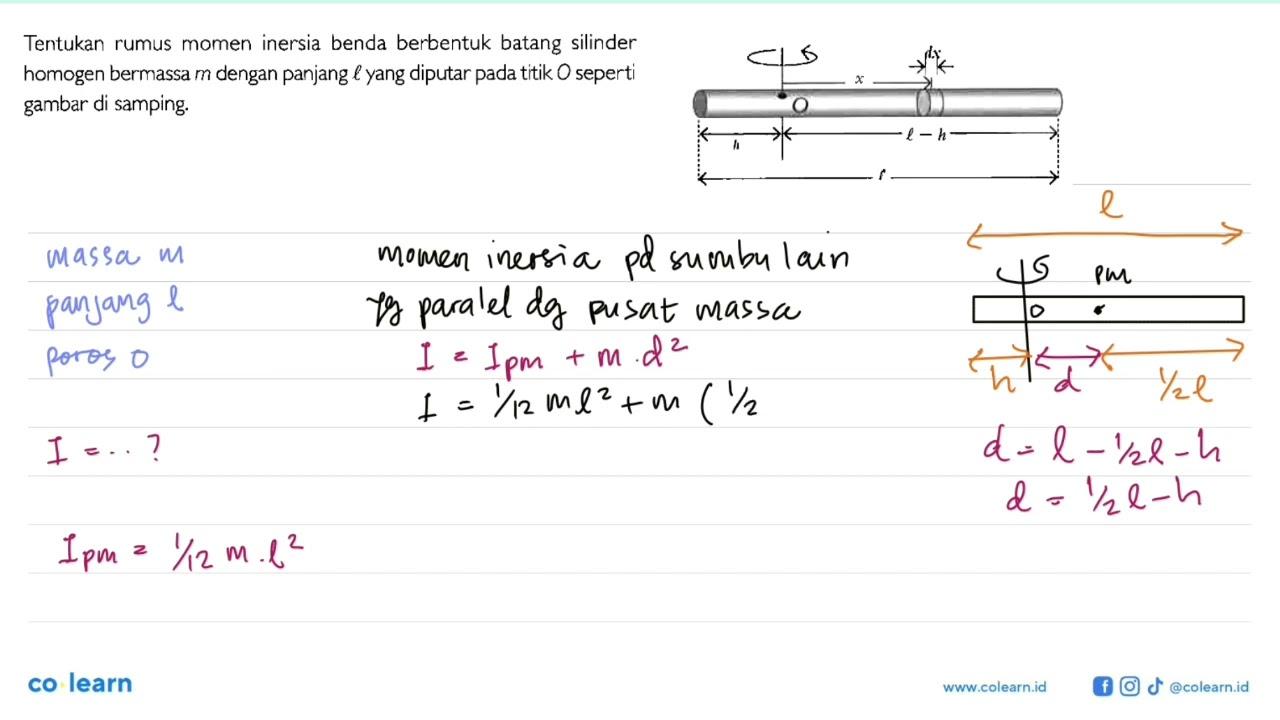 Tentukan rumus momen inersia benda berbentuk batang silinder
homogen bermassa m dengan panjang ℓ yang diputar pada titik O seperti
gambar di samping.
dx
x
O
h
ℓ - h
massa m
panjang l
poros O
I = .. ?
Ipm = 1/12 m . l²
momen inersia pd sumbu lain
yg paralel dg pusat massa
I = Ipm + m . d²
I = 1/12 m l² + m ( 1/2
l
pm
O
h
d
1/2 l
d = l - 1/2 l - h
d = 1/2 l - h
co learn
www.colearn.id
@colearn.id